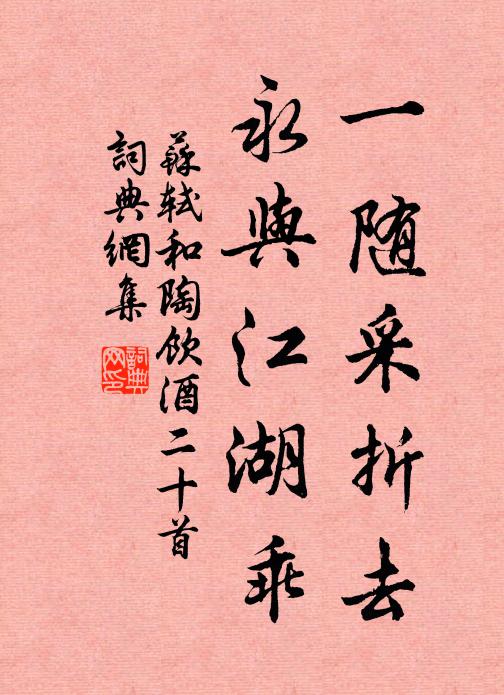 一随采折去
永與江湖乖
蘇軾和陶飲酒二十首
詞典網集
詞典網印